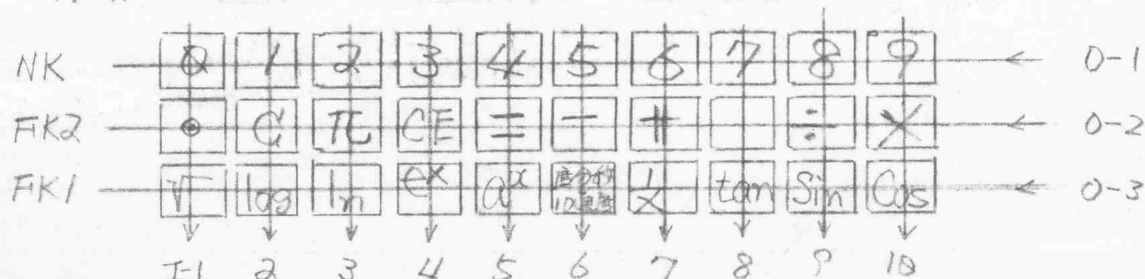 NK 0 1 2 3 4 5 6 7 8 9 0-1
FK2 • C π CE = - + ÷ × 0-2
FK1 √ log ln eˣ aˣ 度分秒 1/x tan Sin Cos 0-3
I-1 2 3 4 5 6 7 8 9 10